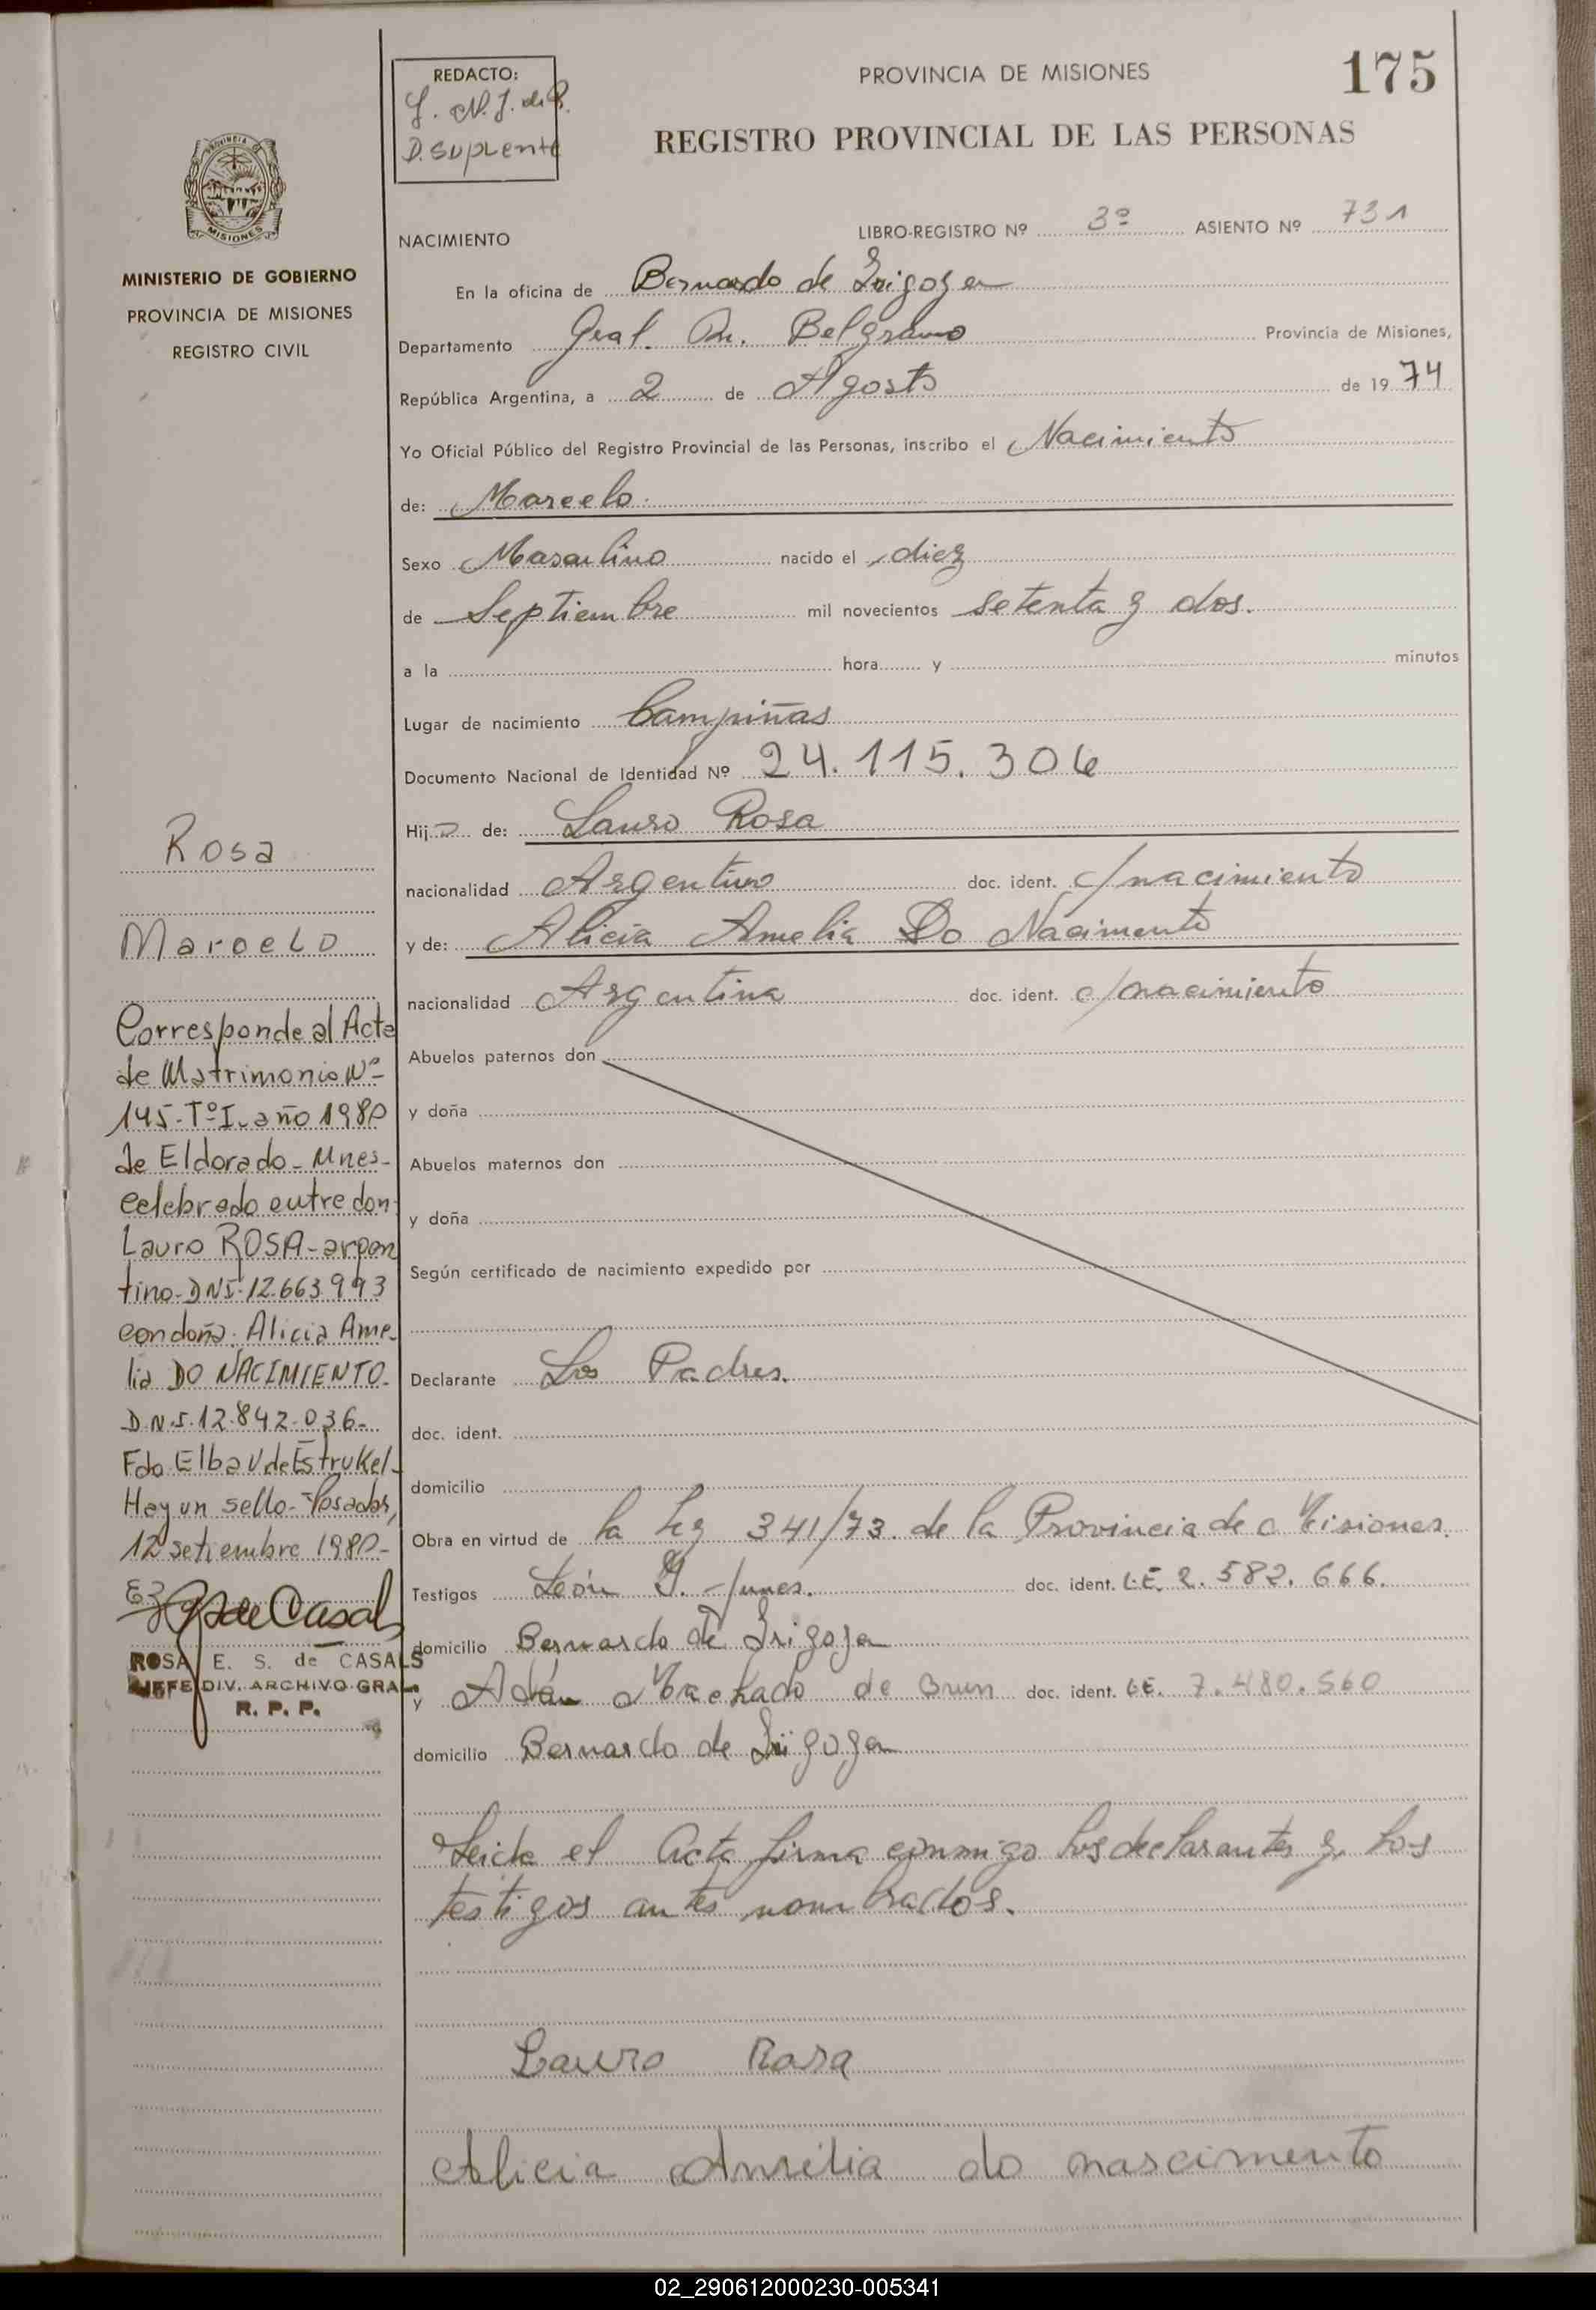 175
REDACTO:
D. Suplente
PROVINCIA DE MISIONES
REGISTRO PROVINCIAL DE LAS PERSONAS
MISIONES
MINISTERIO DE GOBIERNO
PROVINCIA DE MISIONES
REGISTRO CIVIL
NACIMIENTO
LIBRO-REGISTRO Nº 3º ASIENTO Nº 731
En la oficina de Bernardo de Irigoyen
Departamento Gral. M. Belgrano Provincia de Misiones,
República Argentina, a 2 de Agosto de 1974
Yo Oficial Público del Registro Provincial de las Personas, inscribo el Nacimiento
de: Marcelo.
Sexo Masculino nacido el diez
de Septiembre mil novecientos setenta y dos.
a la hora y minutos
Lugar de nacimiento Campiñas
Documento Nacional de Identidad Nº 24.115.306
Hijo de: Lauro Rosa
nacionalidad Argentino doc. ident. c/nacimiento
y de: Alicia Amelia Do Nacimento
nacionalidad Argentina doc. ident. c/nacimiento
Abuelos paternos don
y doña
Abuelos maternos don
y doña
Según certificado de nacimiento expedido por
Declarante Los Padres.
doc. ident.
domicilio
Obra en virtud de la Ley 341/73. de la Provincia de Misiones.
Testigos León doc. ident. L.E. 2.582.666.
domicilio Bernardo de Irigoyen
y Adán Machado de Brun doc. ident. L.E. 7.480.560
domicilio Bernardo de Irigoyen
Leida el Acta firma conmigo los declarantes y los
testigos antes nombrados.
Lauro Rosa
Alicia Amélia do nascimento
Rosa
Marcelo
Corresponde al Acta
de Matrimonio Nº
145-TºI-año 1980
de Eldorado-Mnes-
celebrado entre don
Lauro ROSA-argen
tino-DNI-12.663.993
con doña: Alicia Ame-
lia DO NACIMIENTO.
D.N.I.12.842.036-
Fdo Elba V de Estrukel-
Hay un sello-Posadas,
12 setiembre 1980-
de Casals
ROSA E. S. de CASALS
JEFE DIV. ARCHIVO GRAL
R. P. P.
02_290612000230-005341